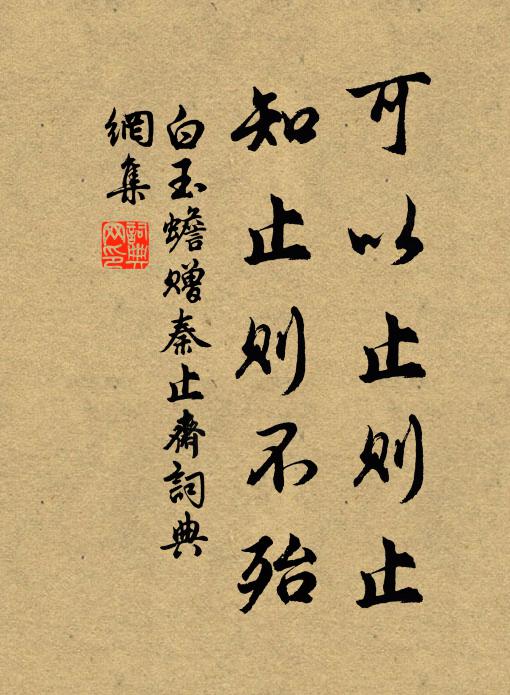 可以止则止
知止则不殆
白玉蟾赠秦止斎詞典
網集
詞典
网印